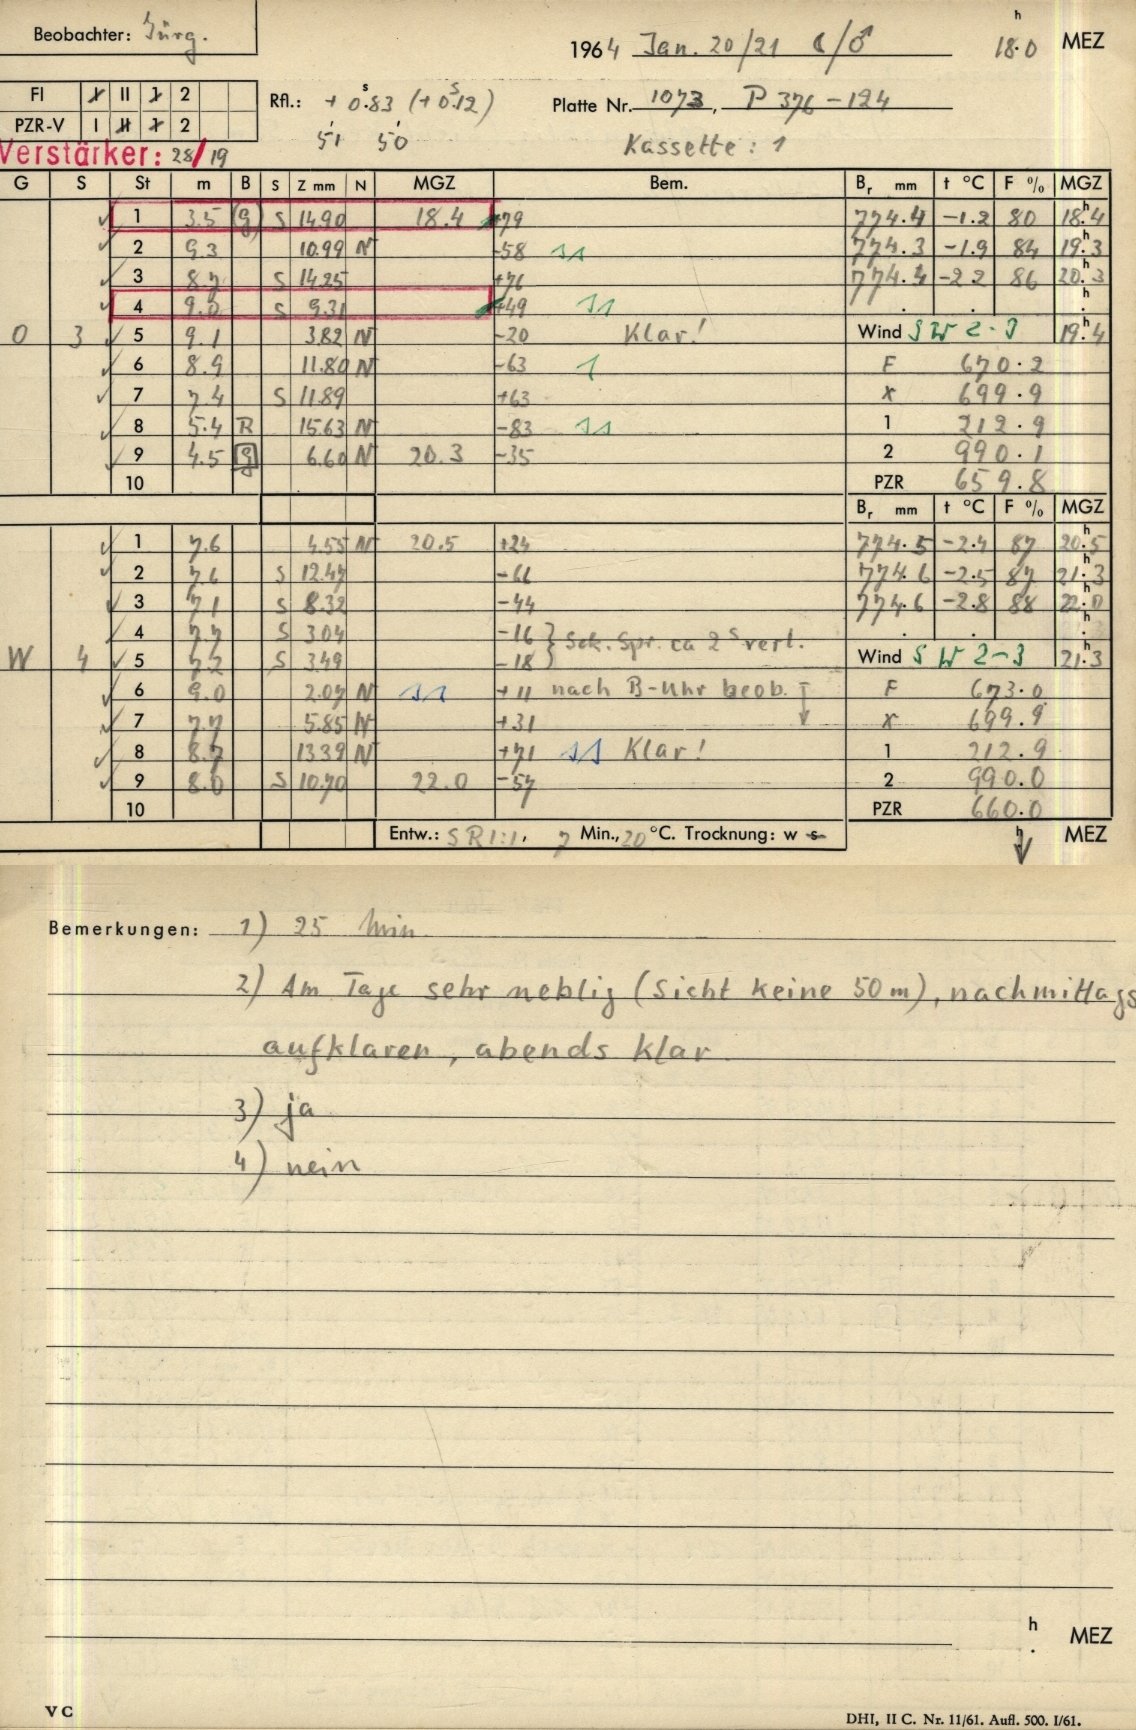 Beobachter: Jürg.
1964 Jan. 20/21 ☾/♂ 18.0 h MEZ
FI I II 1 2
PZR-V I II 1 2
Rfl.: + 0.83 s (+ 0.12 s)
51 50
Platte Nr. 1073, P 376-124
Kassette: 1
Verstärker: 28/19
G S St m B S Z mm N MGZ Bem. Br mm t °C F % MGZ
1 3.5 (g) S 14.90 18.4 +79 774.4 -1.2 80 18.4 h
2 9.3 10.99 N -58 774.3 -1.9 84 19.3 h
3 8.7 S 14.25 +76 774.4 -2.2 86 20.3 h
4 9.0 S 9.31 +49 . . . h
O 3 5 9.1 3.82 N -20 Klar! Wind SW 2-3 19.4 h
6 8.9 11.80 N -63 F 670.2
7 7.4 S 11.89 +63 x 699.9
8 5.4 R 15.63 N -83 1 212.9
9 4.5 g 6.60 N 20.3 -35 2 990.1
10 PZR 659.8
Br mm t °C F % MGZ
1 7.6 4.55 N 20.5 +24 774.5 -2.4 87 20.5 h
2 7.6 S 12.47 -66 774.6 -2.5 87 21.3 h
3 7.1 S 8.32 -44 774.6 -2.8 88 22.0 h
4 7.7 S 3.04 -16 } Sek. Spr. ca 2 s verl. . . . h
W 4 5 7.2 S 3.49 -18 Wind SW 2-3 21.3 h
6 9.0 2.07 N + 11 nach B-Uhr beob. F 673.0
7 7.7 5.85 N +31 x 699.9
8 8.7 13.39 N +71 Klar! 1 212.9
9 8.0 S 10.70 22.0 -57 2 990.0
10 PZR 660.0
Entw.: SR 1:1, 7 Min., 20 °C. Trocknung: w s h MEZ
Bemerkungen: 1) 25 Min
2) Am Tage sehr neblig (Sicht keine 50 m), nachmittags
aufklaren, abends klar
3) ja
4) nein
h . MEZ
V C
DHI, II C. Nr. 11/61. Aufl. 500. I/61.